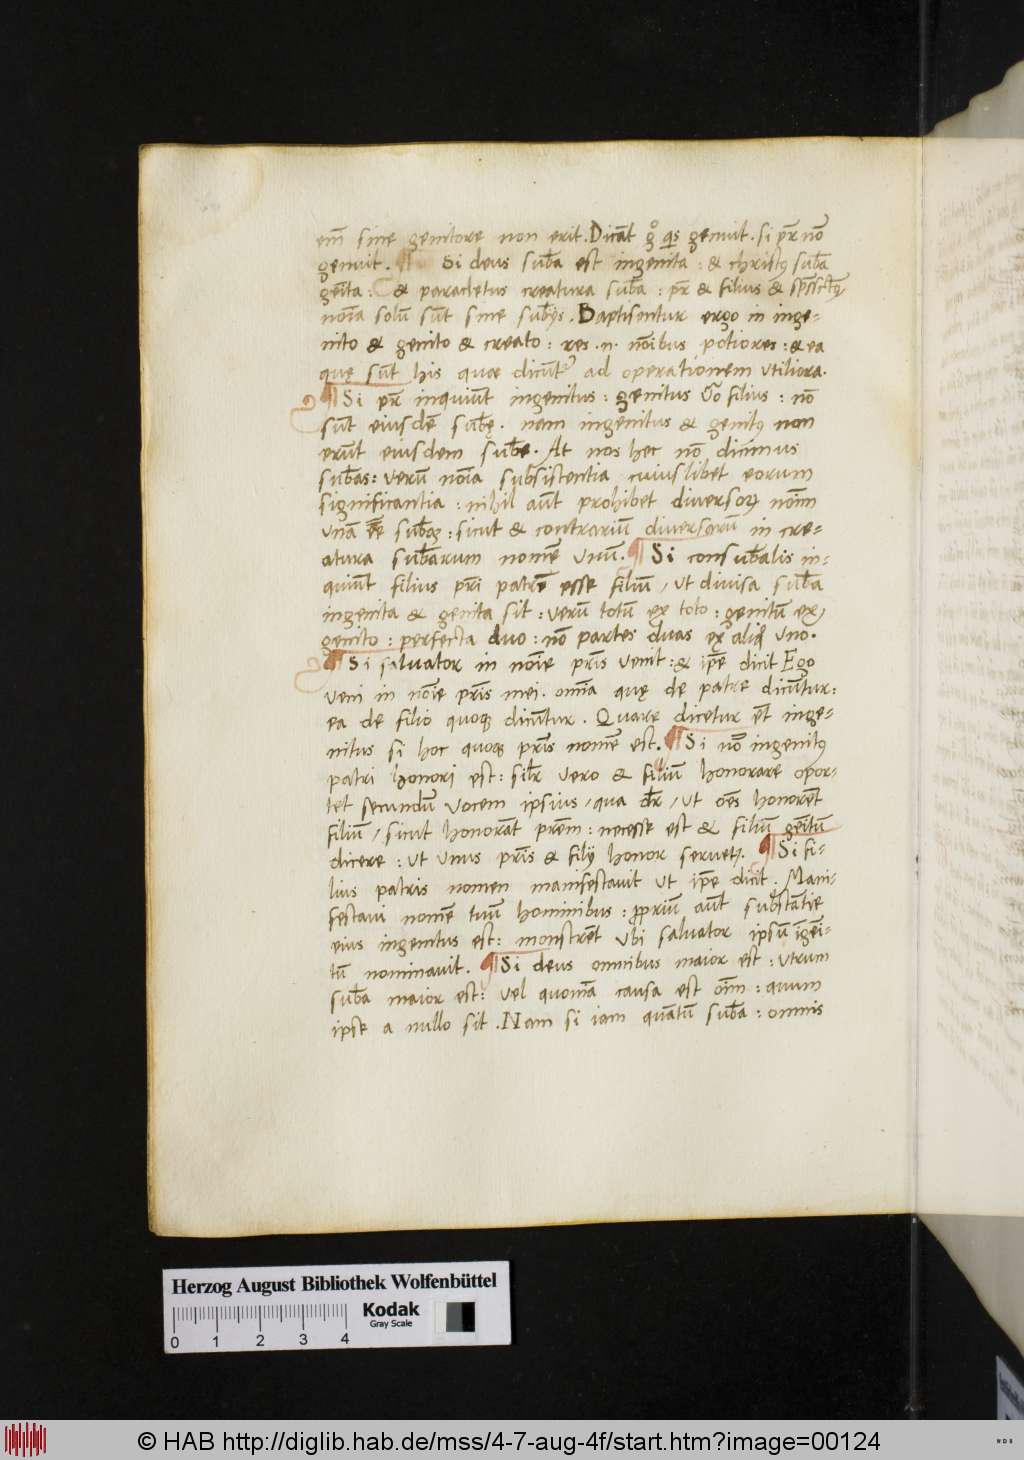 em̄ sine genitore non erit. Dicāt gͦ q̄s genuit. si pr̄ nō
genuit. ¶ Si deus sub̄a est ingenita: & christꝰ sub̄a
genīta: & paracletus creatura sub̄a: pr̄ & filius & sp̄s sct̄ꝰ
noīa solū sūt sine sub̄ijs. Baptisentur ergo in inge-
nito & genito & creato: res .n. noībus potiores: & ea
quę sūt his quae dicūtᷣ ad operationem utiliora.
¶ Si pr̄ inquiūt ingenitus: genitus v̄o filius: nō
sūt eiusdē sub̄ę. nam ingenitus & genitꝰ non
erūt eiusdem sub̄e. At nos hec nō dicimus
sub̄as: verū noīa subsistentia cuiuslibet eorum
significantia: nihil aūt prohibet diversoꝝ noīm
unā eē̄ sub̄aꝫ: sicut & contrariū diversarū in cre-
atura sub̄arum nomē unū. ¶ Si consub̄alis in-
quiūt filius pr̄i patrē esse filiū, ut divisa sub̄a
ingenita & genita sit: verū totū ex toto: genitū ex
genito: perfecta duo: nō partes duas ex aliq̄ uno.
¶ Si salvator in noīe pr̄is venit: & ip̄e dicit Ego
veni in noīe pr̄is mei. omīa quę de patre dicūtur:
ea de filio quoqꝫ dicūtur. Quare dicetur ēt inge-
nitus si hoc quoqꝫ pr̄is nomē est. ¶ Si nō ingenitꝰ
patri honori est: sil̄r vero & filiū honorare opor-
tet secundū vocem ipsius, qua dr̄, ut oēs honorēt
filiū, sicut honorāt prēm: necesse est & filiū genītū
dicere: ut unus pr̄is & filij honor servetꝛ. ¶ Si fi-
lius patris nomen manifestavit ut ip̄e dicit. Mani-
festavi nomē tuū hominibus: propriū aūt substātie
eius ingenitus est: monstrēt ubi salvator ipsū īgenī-
tū nominavit. ¶ Si deus omnibus maior est: utrum
sub̄a maior est: vel quoniā causa est oīm: quum
ipse a nullo sit. Nam si iam quātū sub̄a: omnis
Herzog August Bibliothek Wolfenbüttel
Kodak
Gray Scale
0 1 2 3 4
© HAB http://diglib.hab.de/mss/4-7-aug-4f/start.htm?image=00124